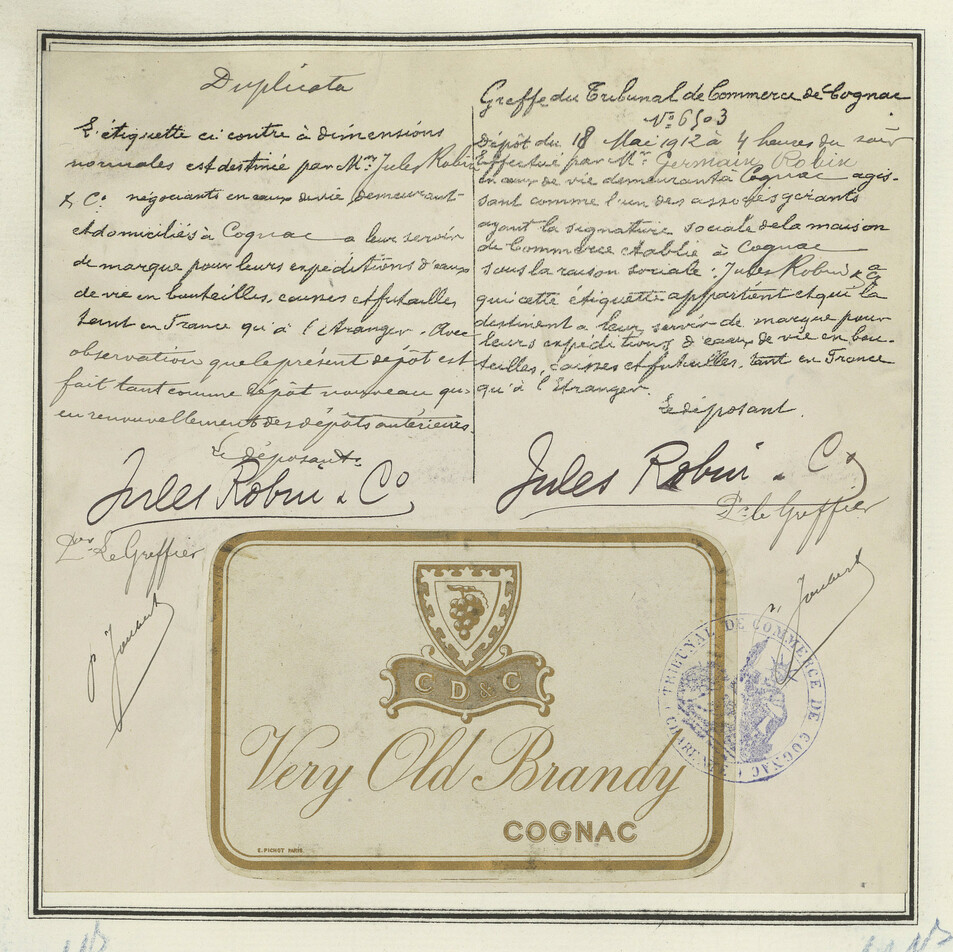 Duplicata
L'étiquette ci contre à dimensions
normales est destinée par Mrs Jules Robin
& Co négociants en eaux de vie demeurant
et domiciliés à Cognac a leur servir
de marque pour leurs expéditions d'eaux
de vie en bouteilles, caisses et futailles
tant en France qu'à l'Etranger. Avec
observation que le présent dépôt est
fait tant comme dépôt nouveau qu'
en renouvellement des dépôts antérieurs.
Le déposant
Jules Robin & Co
Pr Le Greffier
P. Joubert
Greffe du Tribunal de Commerce de Cognac
No 6503
Dépôt du 18 Mai 1912 à 4 heures du soir
Effectué par Mr Germain Robin
en eaux de vie demeurant à Cognac agis-
sant comme l'un des associés gérants
ayant la signature sociale de la maison
de Commerce établie à Cognac
sous la raison sociale: Jules Robin &
qui cette étiquette appartient et qui la
destinent a leur servir de marque pour
leurs expéditions d'eaux de vie en bou-
teilles, caisses et futailles, tant en France
qu'à l'Etranger.
Le déposant.
Jules Robin & Co
Pr le Greffier
P. Joubert
TRIBUNAL DE COMMERCE DE COGNAC
C D & C
Very Old Brandy
COGNAC
E. PICHOT PARIS.